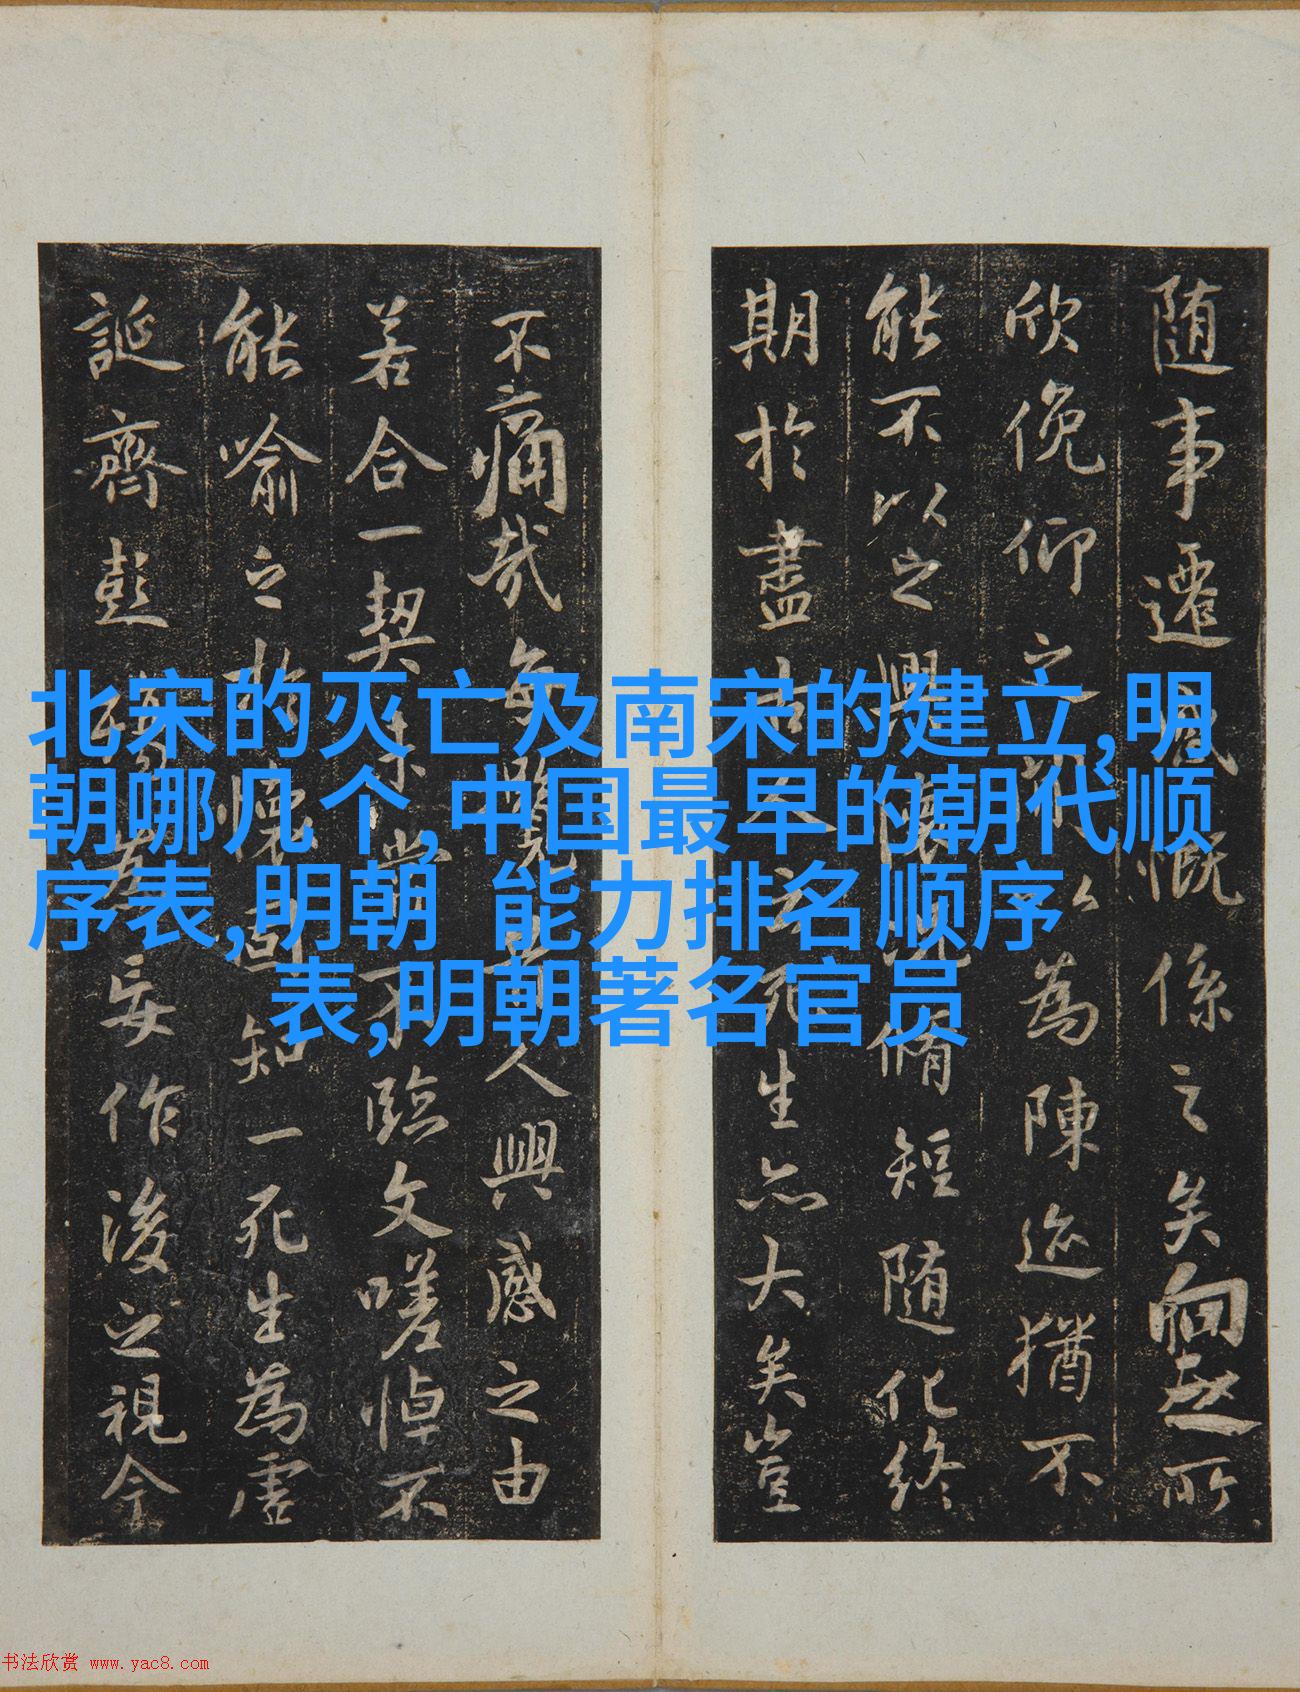 随事遷感慨係之矣向之所
欣俛仰之以為陳迹猶不
能不以之興懷況脩短随化終
期於盡古人云死生亦大矣豈
不痛哉每攬昔人興感之由
若合一契未嘗不臨文嗟悼不
能喻之於懷固知一死生為虛
誕齊彭殤為妄作後之視今
北宋的灭亡及南宋的建立,明
朝哪几个,中国最早的朝代顺
序表,明朝  能力排名顺序
表,明朝著名官员
书法欣赏 www.yac8.com